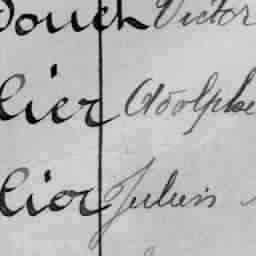 Douch Victor
lier Adolphe
lior Julien